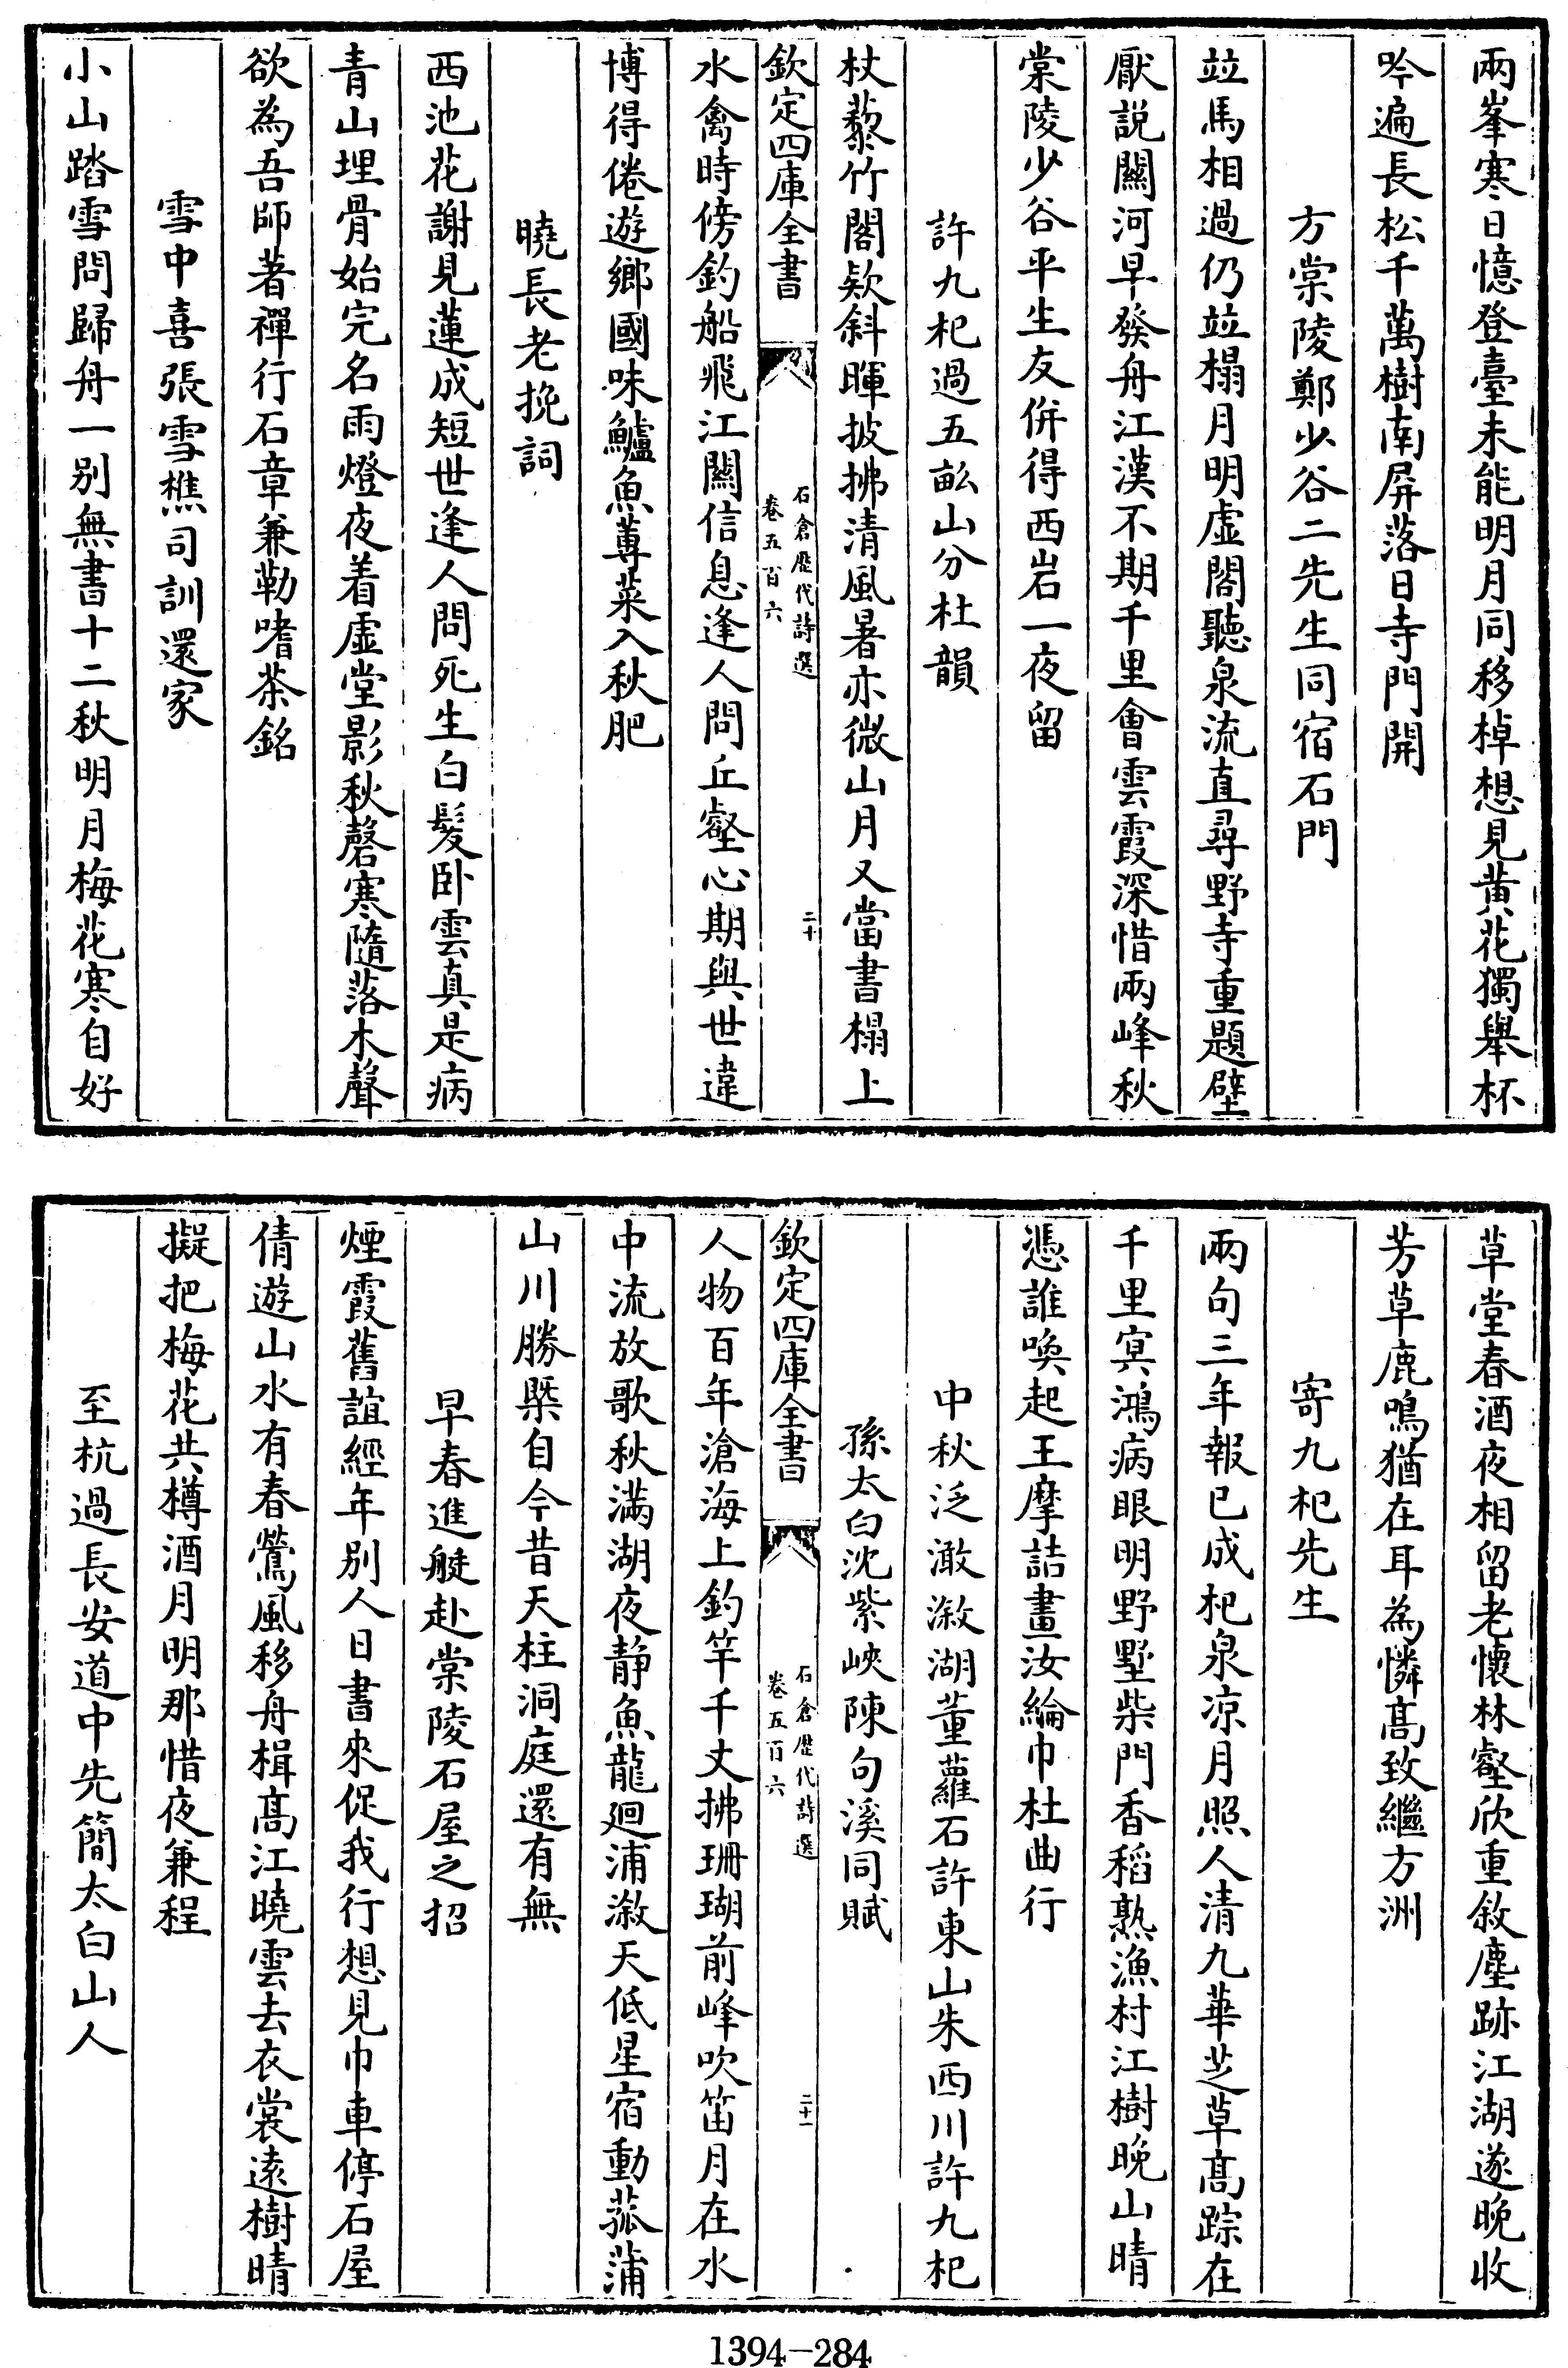 兩峯寒日憶登臺未能明月同移棹想見黄花獨舉杯
吟遍長松千萬樹南屏落日寺門開
方棠陵鄭少谷二先生同宿石門
竝馬相過仍竝榻月明虛閣聽泉流直尋野寺重題壁
厭説關河早發舟江漢不期千里會雲霞深惜兩峰秋
棠陵少谷平生友併得西岩一夜留
許九杞過五畝山分杜韻
杖藜竹閣欵斜暉披拂清風暑亦微山月又當書榻上
欽定四庫全書
石倉歴代詩選
卷五百六
二十
水禽時傍釣船飛江關信息逢人問丘壑心期與世違
博得倦遊鄉國味鱸魚蓴菜入秋肥
曉長老挽詞
西池花謝見蓮成短世逢人問死生白髪卧雲真是病
青山埋骨始完名雨燈夜着虛堂影秋磬寒隨落木聲
欲為吾師著禪行石章兼勒嗜茶銘
雪中喜張雪樵司訓還家
小山踏雪問歸舟一别無書十二秋明月梅花寒自好
草堂春酒夜相留老懷林壑欣重敘塵跡江湖遂晚收
芳草鹿鳴猶在耳為憐髙致繼方洲
寄九杞先生
兩句三年報已成杞泉凉月照人清九華芝草髙踪在
千里冥鴻病眼明野墅柴門香稻熟漁村江樹晚山晴
憑誰喚起王摩詰畫汝綸巾杜曲行
中秋泛澉湖董蘿石許東山朱西川許九杞
孫太白沈紫峽陳句溪同賦
欽定四庫全書
石倉歴代詩選
卷五百六
二十一
人物百年滄海上釣竿千丈拂珊瑚前峰吹笛月在水
中流放歌秋滿湖夜静魚龍廻浦溆天低星宿動菰蒲
山川勝槩自今昔天柱洞庭還有無
早春進艇赴棠陵石屋之招
煙霞舊誼經年别人日書來促我行想見巾車停石屋
倩遊山水有春鶯風移舟楫髙江曉雲去衣裳遠樹晴
擬把梅花共樽酒月明那惜夜兼程
至杭過長安道中先簡太白山人
1394-284